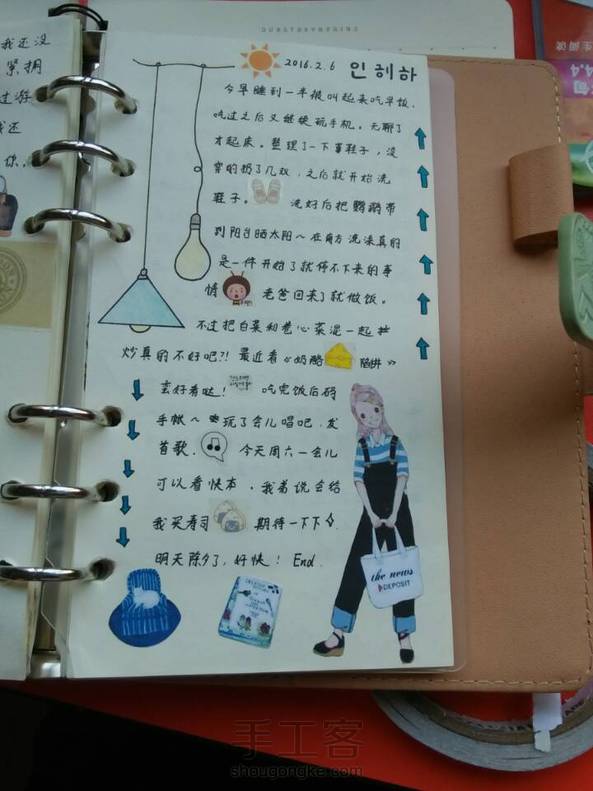 我还没
紧拥
过游
我还
你。
2016.2.6
今早睡到一半被叫起来吃早饭.
吃过之后又继续玩手机。无聊了
才起床。整理了一下事鞋子,没
穿的扔了几双,之后就开始洗
鞋子。 洗好后把鹦鹉带
到阳台晒太阳~在角方洗澡真的
是一件开始了就停不下来的事
情 老爸回来了就做饭。
不过把白菜和卷心菜混一起
炒真的不好吧?! 最近看《奶酪 陷阱》
蛮好看哒! 吃完饭后码
手帐~ 玩了会儿唱吧.发
首歌. 今天周六一会儿
可以看快本.我爸说会给
我买寿司 期待一下下
明天除夕了,好快! End.
the news
DEPOSIT
手工客
shougongke.com